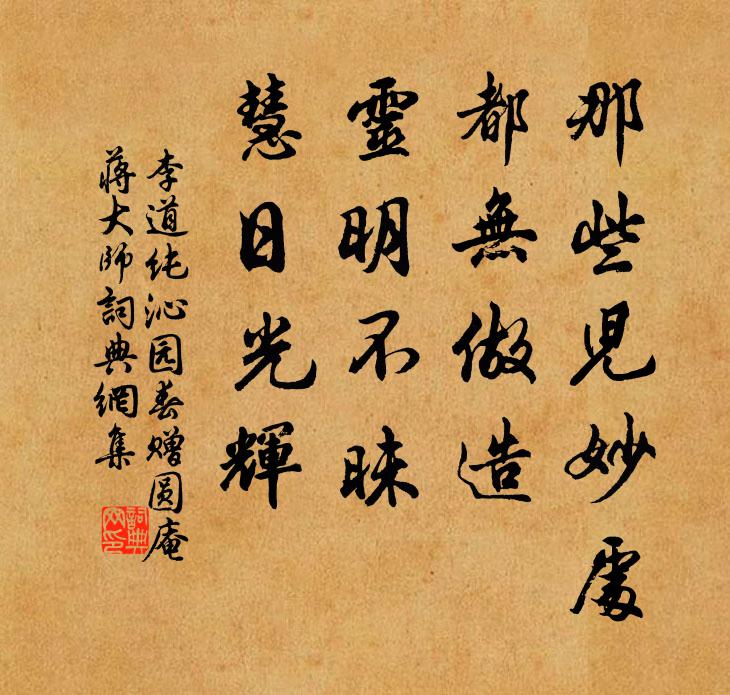 那些兒妙處
都無做造
靈明不昧
慧日光輝
李道纯沁园春赠圓庵
蔣大师詞典網集
詞典网印